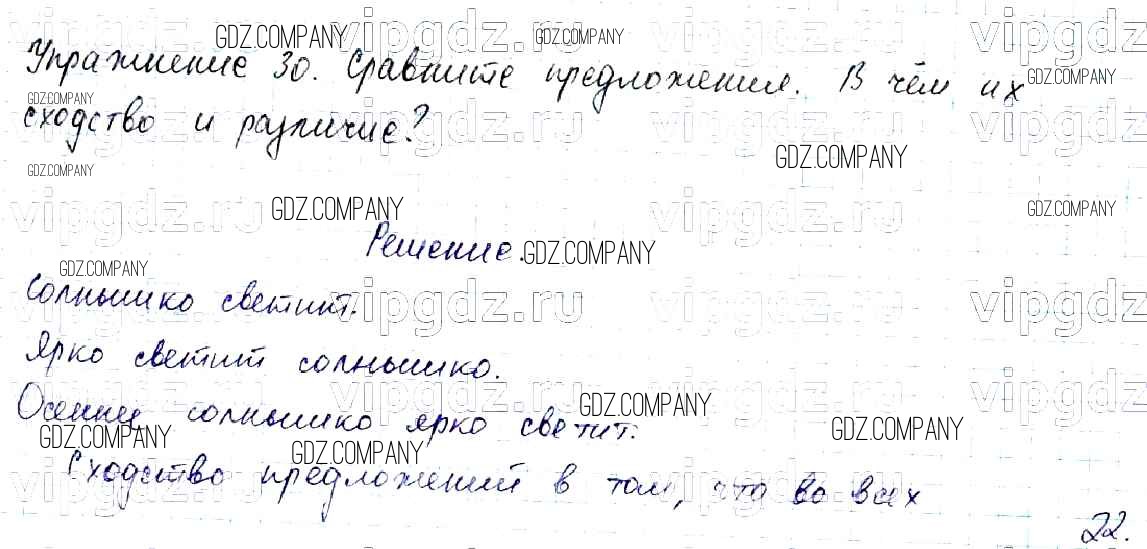 Упражнение 30. Сравните предложения. В чём их
сходство и различие?
Решение.
Солнышко светит.
Ярко светит солнышко.
Осеннее солнышко ярко светит.
Сходство предложений в том, что во всех
22.
GDZ.COMPANY
vipgdz.ru